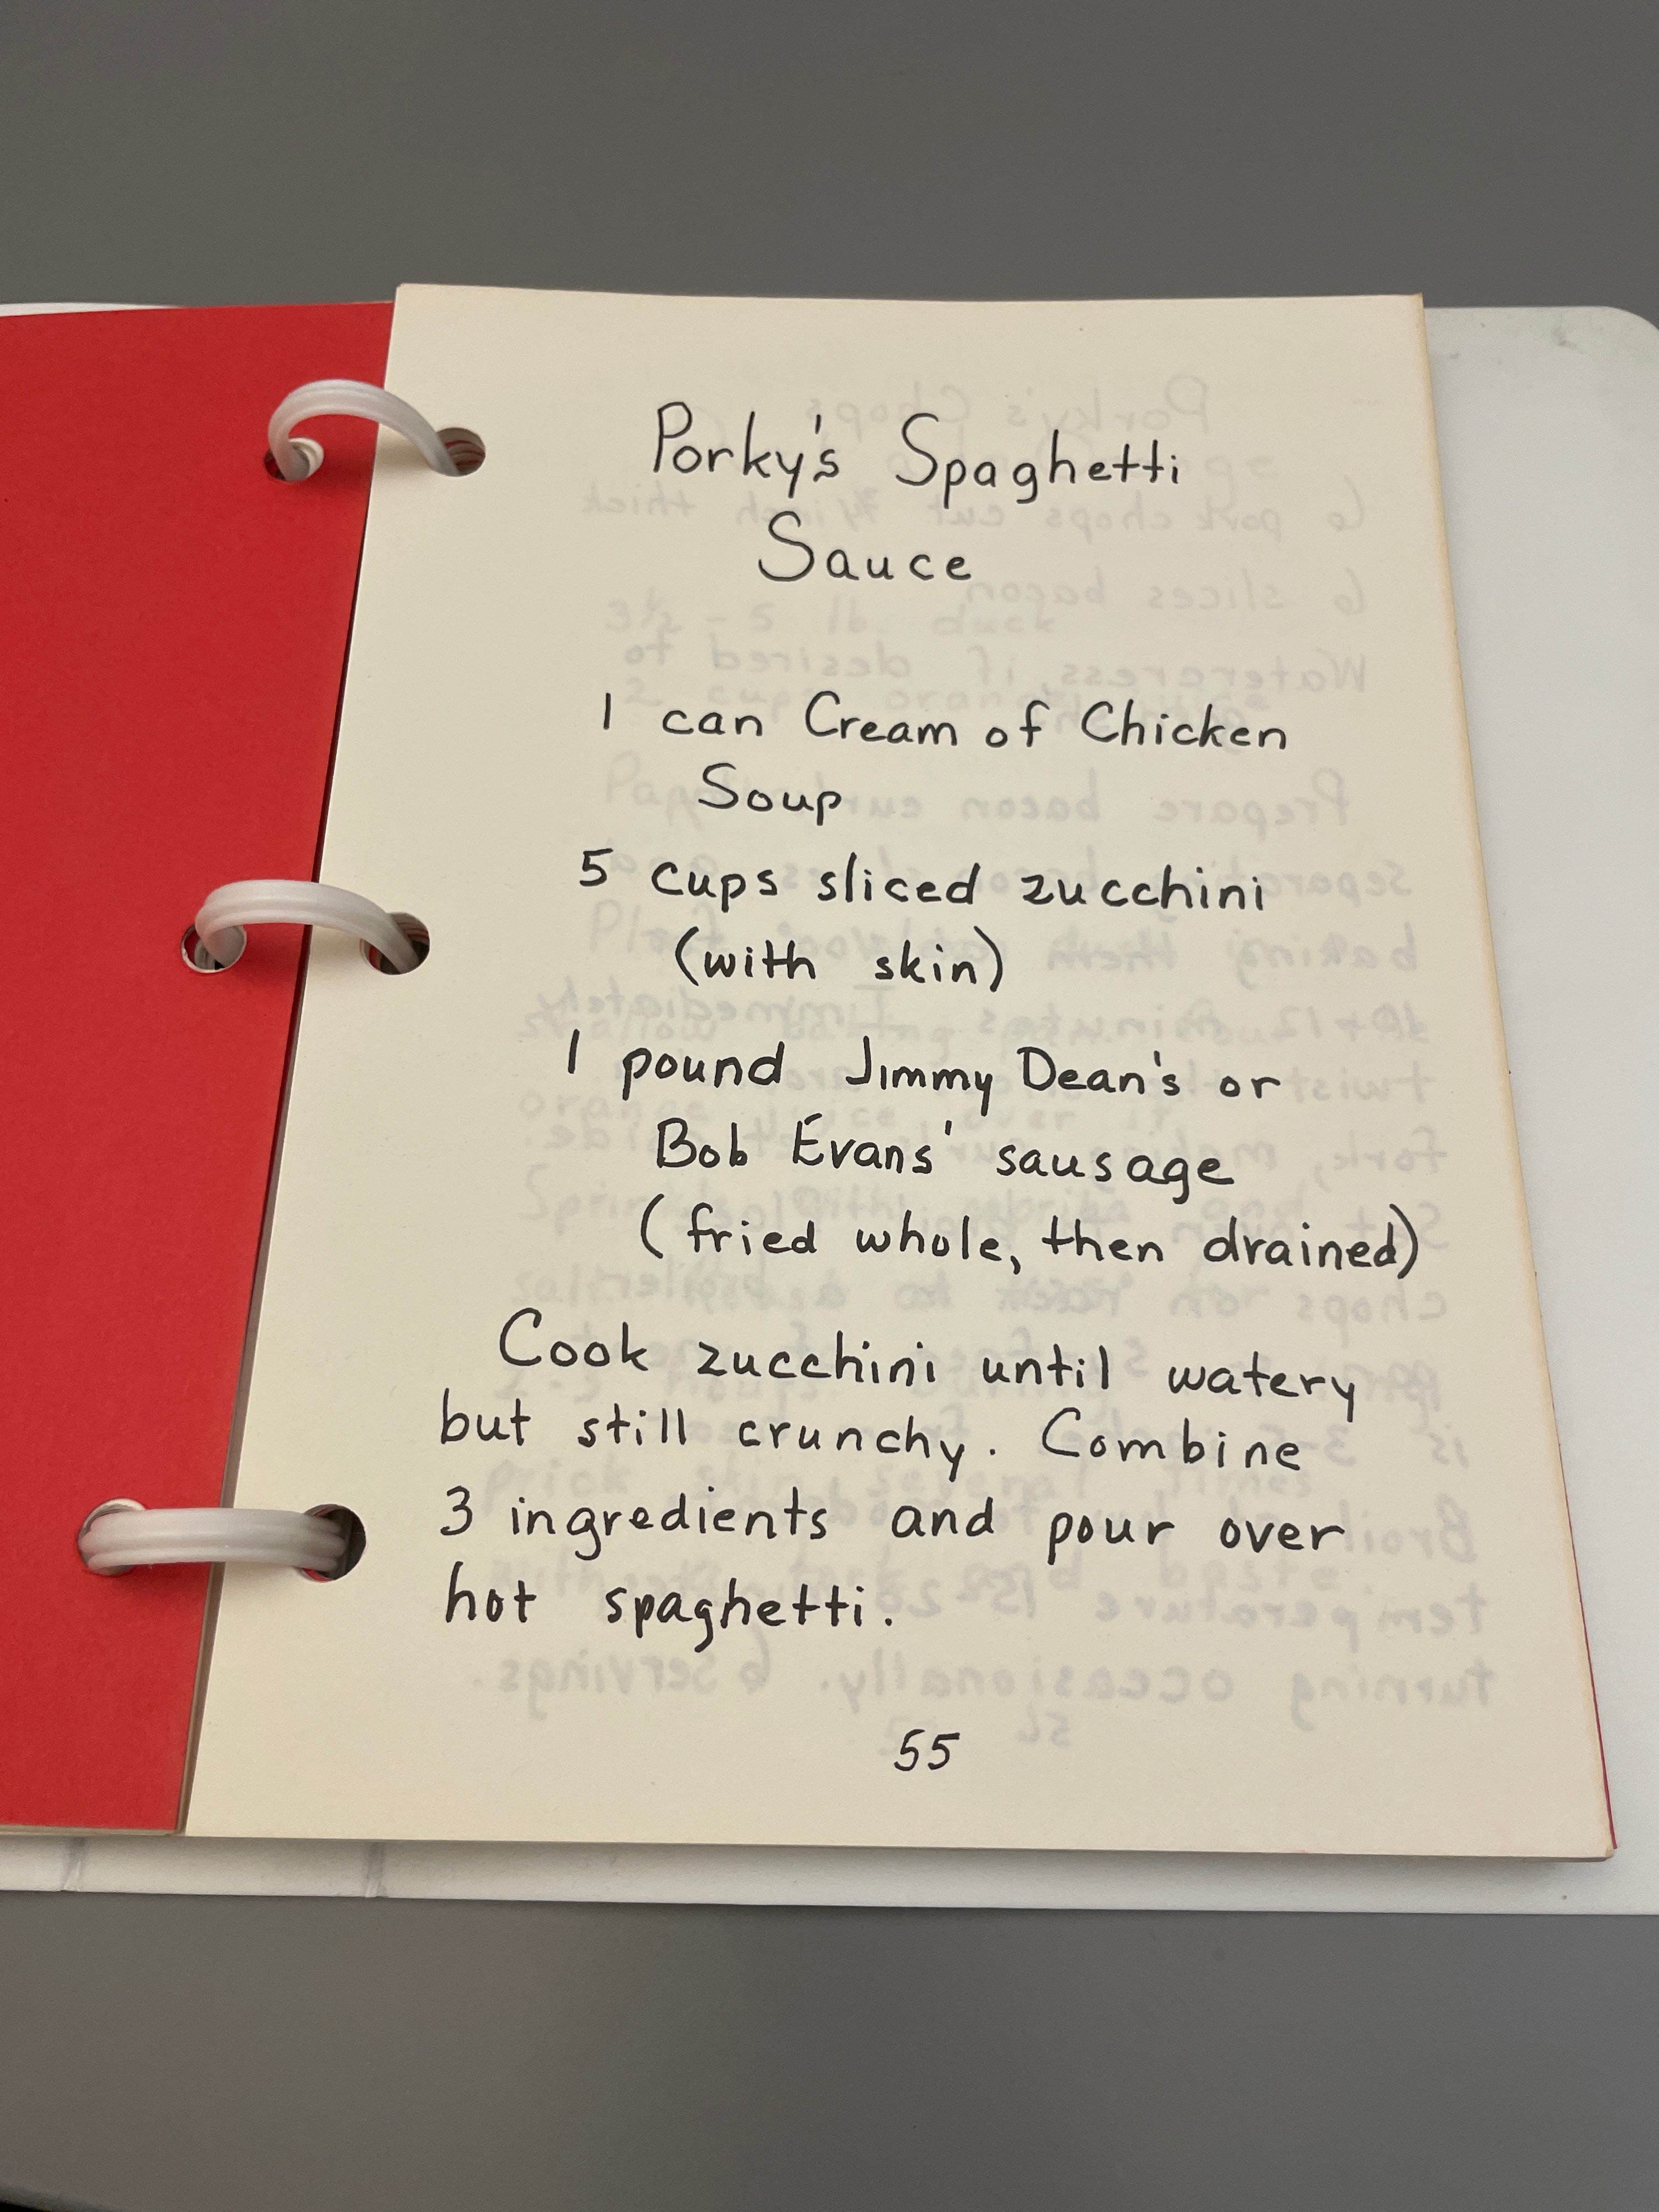 Porky's Spaghetti
Sauce
1 can Cream of Chicken
Soup
5 cups sliced zucchini
(with skin)
1 pound Jimmy Dean's or
Bob Evans' sausage
(fried whole, then drained)
Cook zucchini until watery
but still crunchy. Combine
3 ingredients and pour over
hot spaghetti.
55